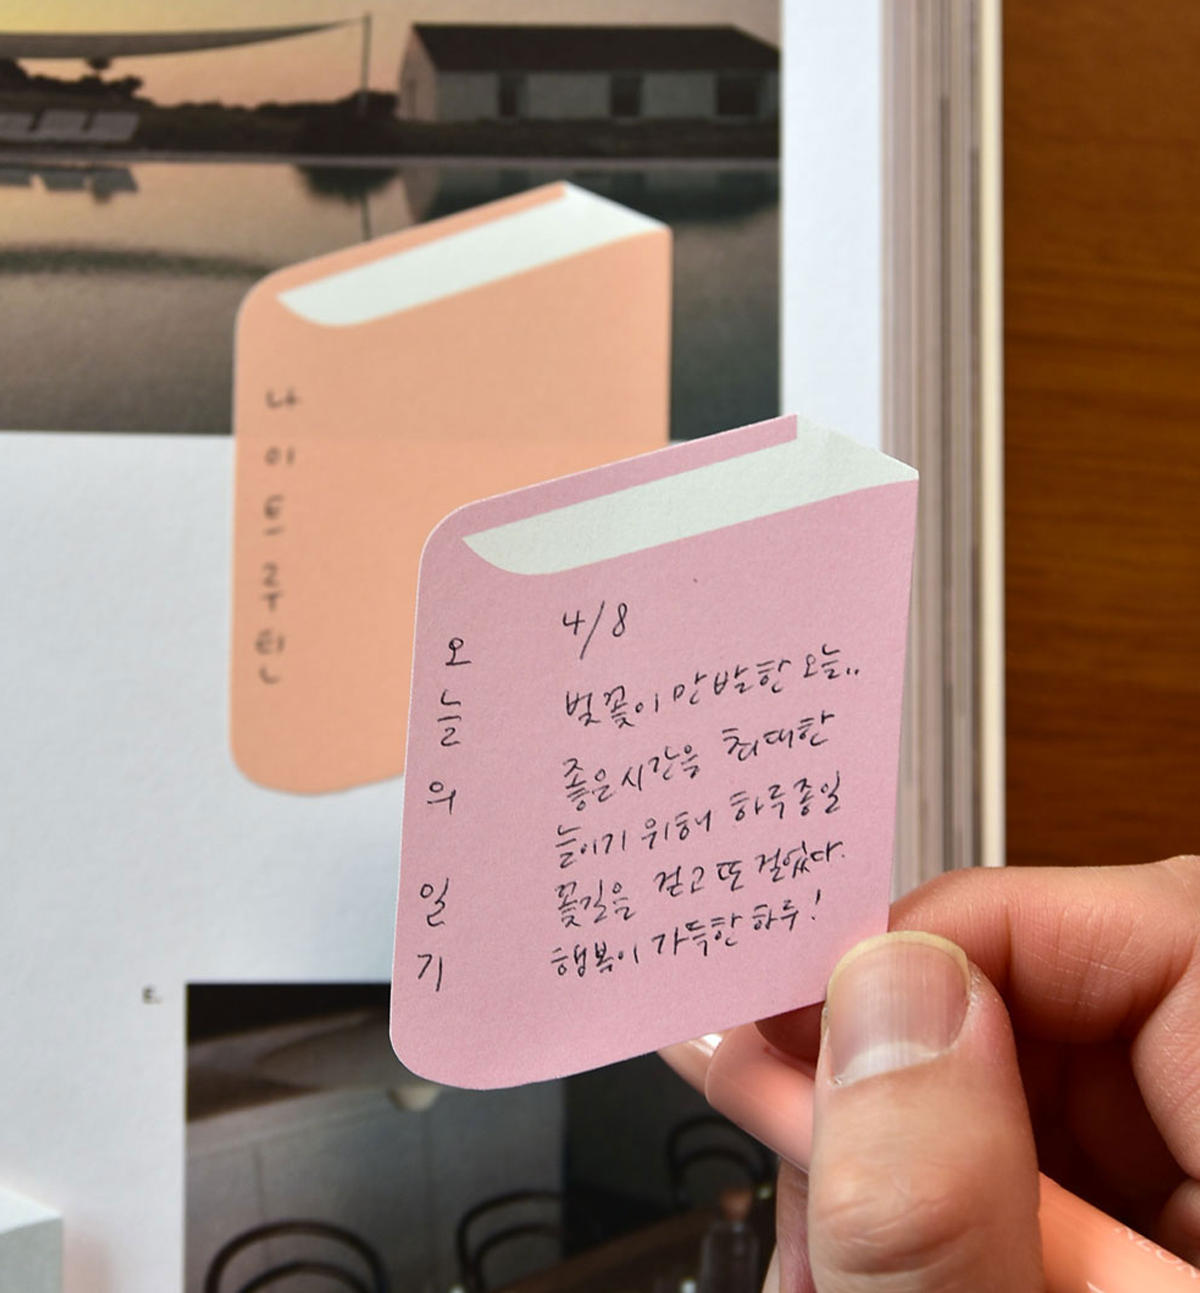 나이트루틴
오늘의 일기
4/8
벚꽃이 만발한 오늘..
좋은 시간을 최대한
늘이기 위해 하루종일
꽃길을 걷고 또 걸었다.
행복이 가득한 하루!
E.